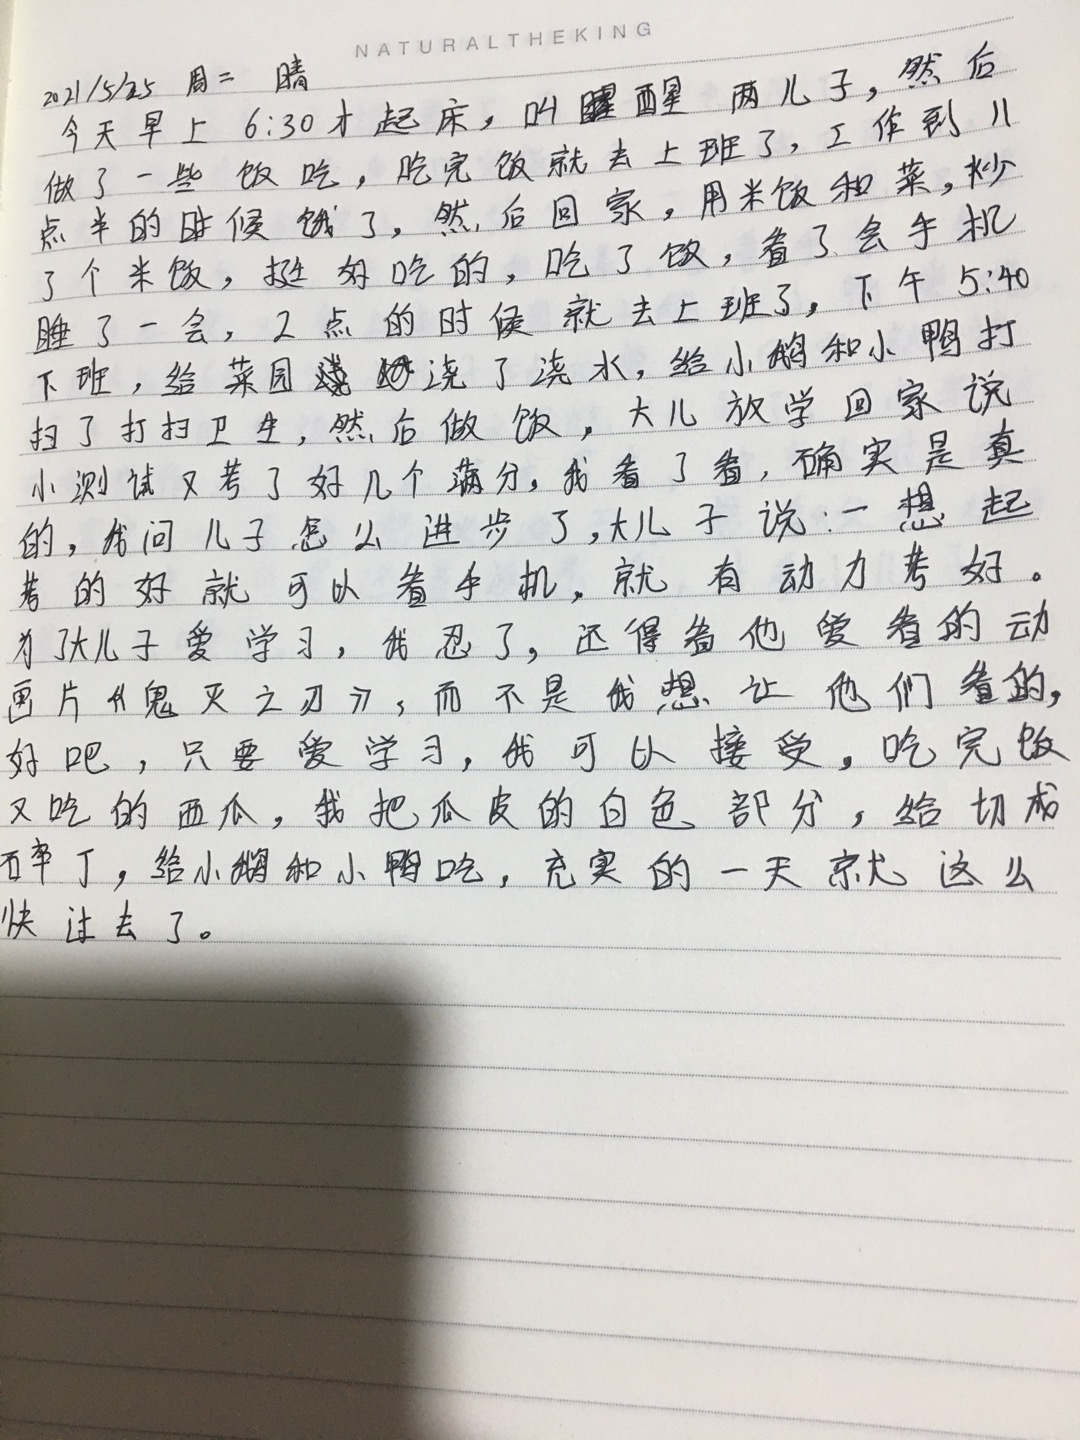 NATURALTHEKING
2021/5/25 周二 晴
今天早上 6:30才起床，叫醒 两儿子，然后
做了一些饭吃，吃完饭就去上班了，工作到11
点半的时候饿了，然后回家，用米饭和菜，炒
了个米饭，挺好吃的，吃了饭，看了会手机
睡了一会，2点的时候就去上班了，下午5:40
下班，给菜园浇了浇水，给小鹅和小鸭打
扫了打扫卫生，然后做饭，大儿放学回家说
小测试又考了好几个满分，我看了看，确实是真
的，我问儿子怎么进步了，大儿子说：一想起
考的好就可以看手机，就有动力考好。
为了大儿子爱学习，我忍了，还得看他爱看的动
画片《鬼灭之刃》，而不是我想让他们看的，
好吧，只要爱学习，我可以接受，吃完饭
又吃的西瓜，我把瓜皮的白色部分，给切成
碎丁，给小鹅和小鸭吃，充实的一天就这么
快过去了。